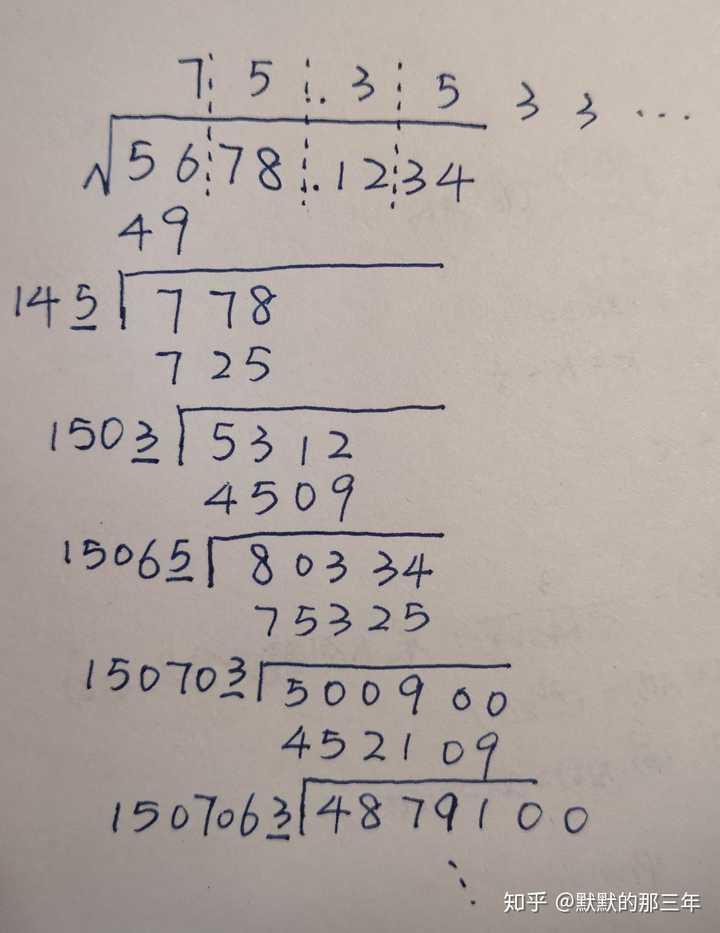 7 5 . 3 5 3 3 ...
√56 78 . 12 34
49
145 778
725
1503 5312
4509
15065 80334
75325
150703 500900
452109
1507063 4879100
⋮
知乎 @默默的那三年